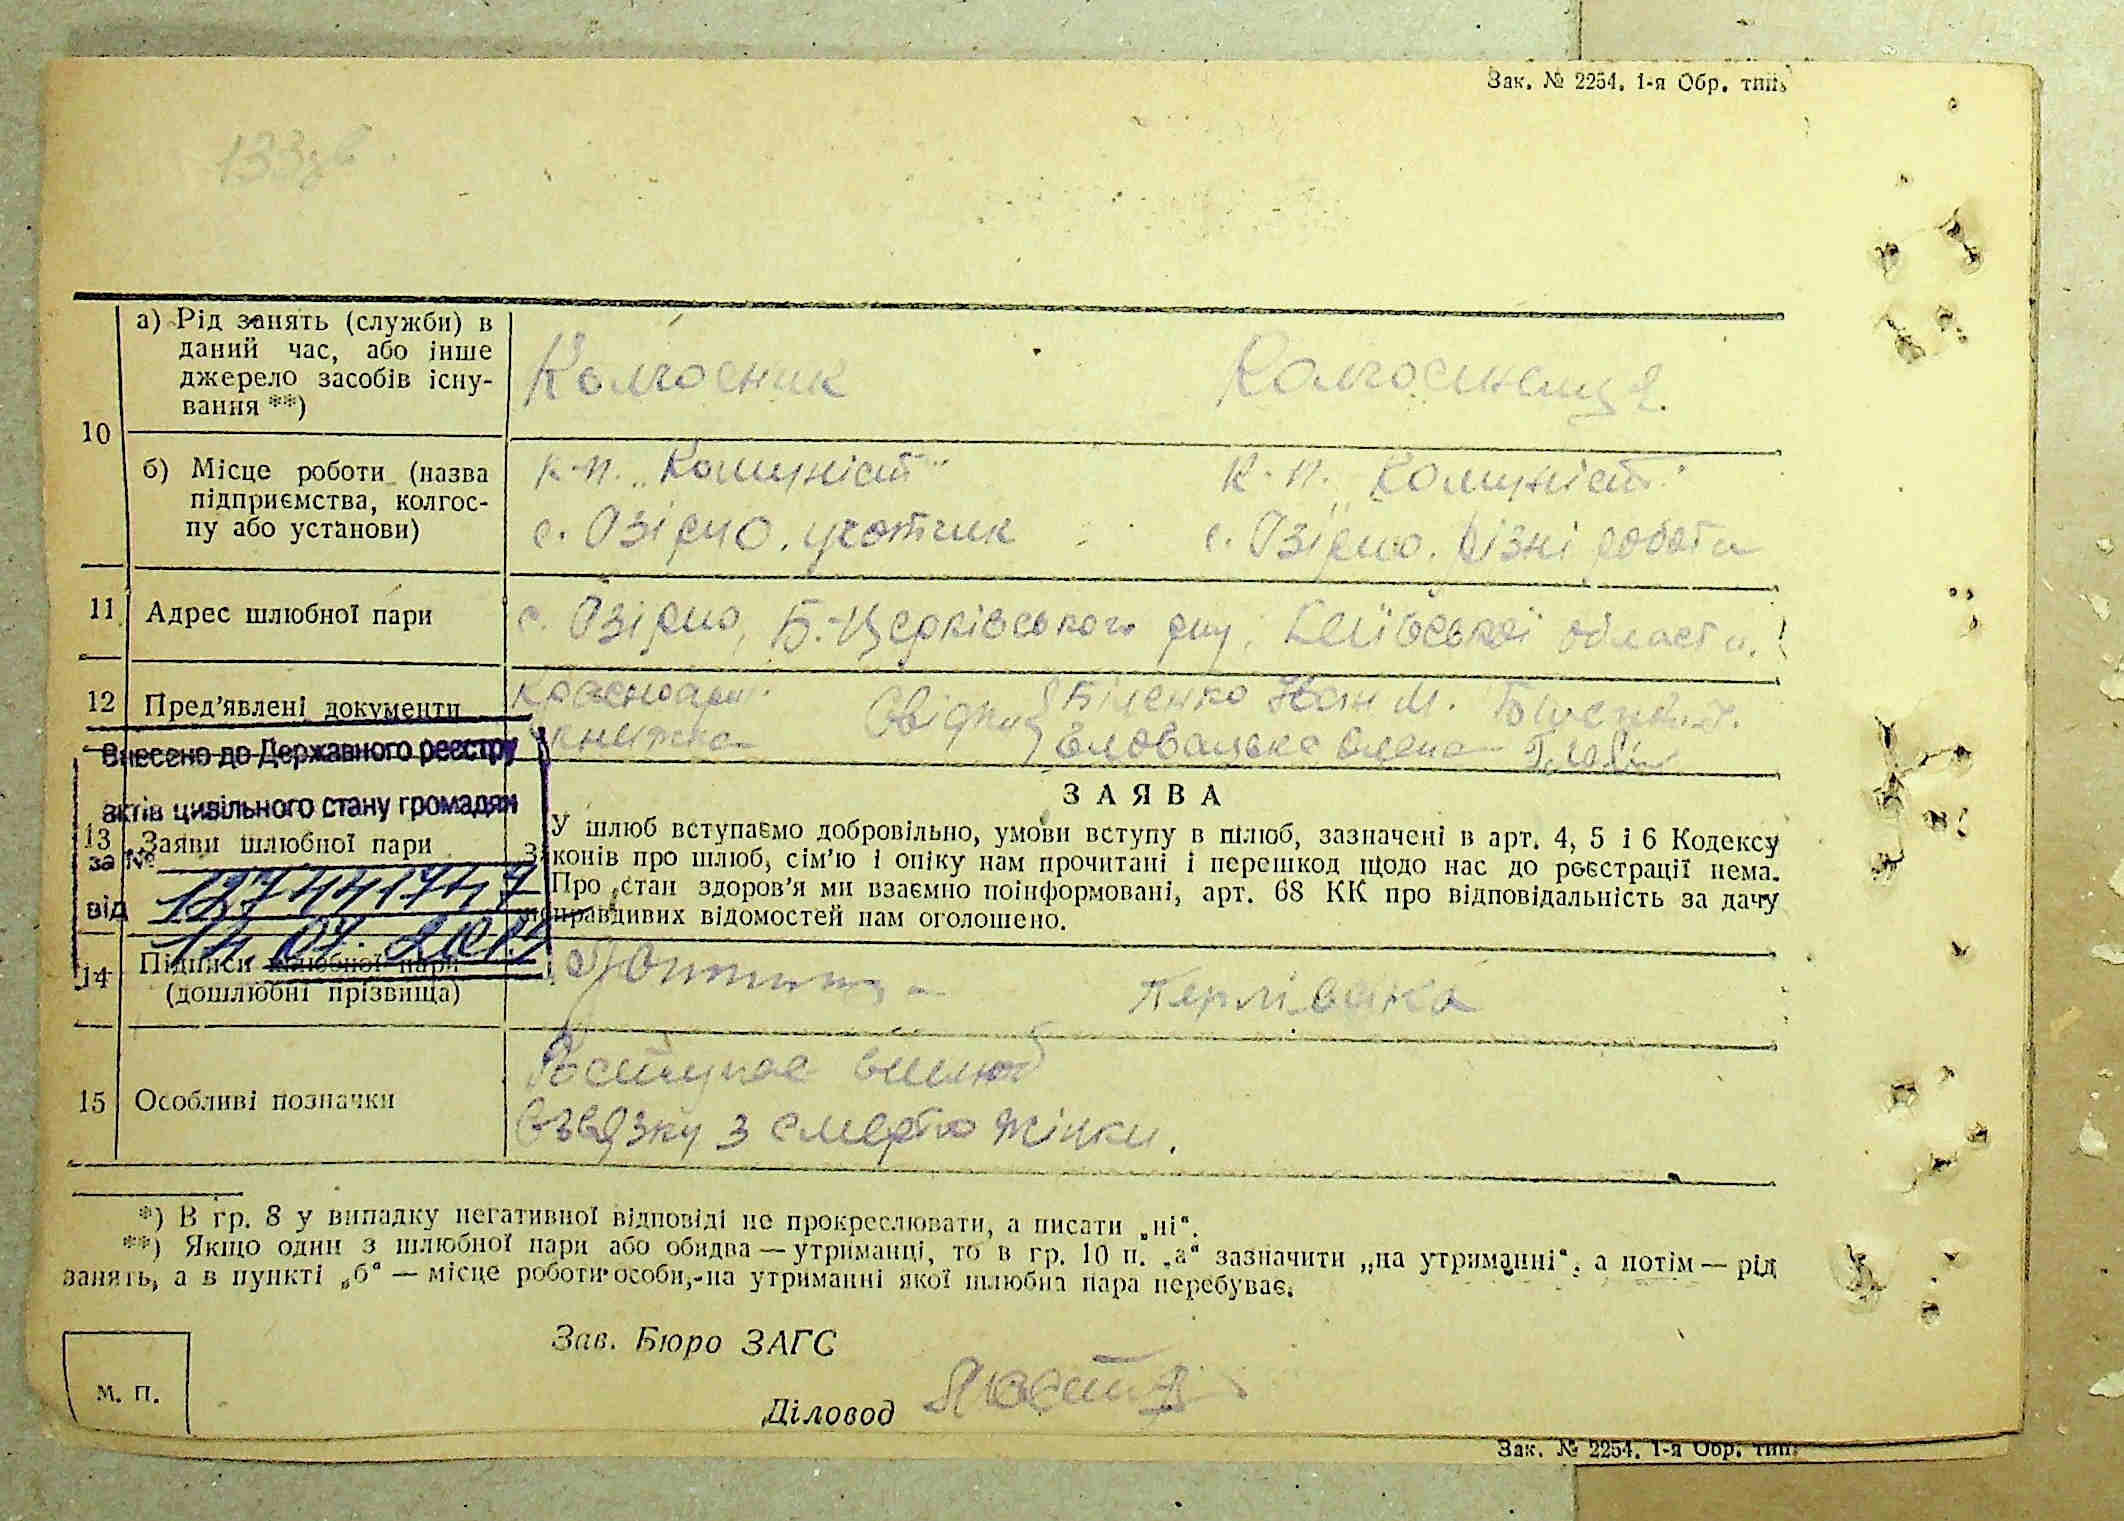 Зак. № 2254. 1-я Обр. тип.
133зв
10
а) Рід занять (служби) в
даний час, або інше
джерело засобів існу-
вання **)
Колгосник
Колгосниця.
б) Місце роботи (назва
підприємства, колгос-
пу або установи)
к-п. „Комуніст“
с. Озірно. учотчик
к-п. „Комуніст“
с. Озірно. Різні роботи
11
Адрес шлюбної пари
с. Озірно, Б-Церківського р-ну, Київської области.
12
Пред'явлені документи
Красноарм.
книжка
Свідки
Біленко Іван М.
Олена
Внесено до Державного реєстру
актів цивільного стану громадян
за №
від
13
Заяви шлюбної пари
ЗАЯВА
У шлюб вступаємо добровільно, умови вступу в шлюб, зазначені в арт. 4, 5 і 6 Кодексу
конів про шлюб, сім'ю і опіку нам прочитані і перешкод щодо нас до реєстрації нема.
Про стан здоров'я ми взаємно поінформовані, арт. 68 КК про відповідальність за дачу
неправдивих відомостей нам оголошено.
14
Підписи шлюбної пари
(дошлюбні прізвища)
15
Особливі позначки
Поступає в шлюб
взвязку з смертю жінки.
*) В гр. 8 у випадку негативної відповіді не прокреслювати, а писати „ні“.
**) Якщо один з шлюбної пари або обидва — утриманці, то в гр. 10 п. „а“ зазначити „на утриманні“, а потім — рід
занять, а в пункті „б“ — місце роботи особи, на утриманні якої шлюбна пара перебуває.
Зав. Бюро ЗАГС
м. п.
Діловод
Зак. № 2254. 1-я Обр. тип.